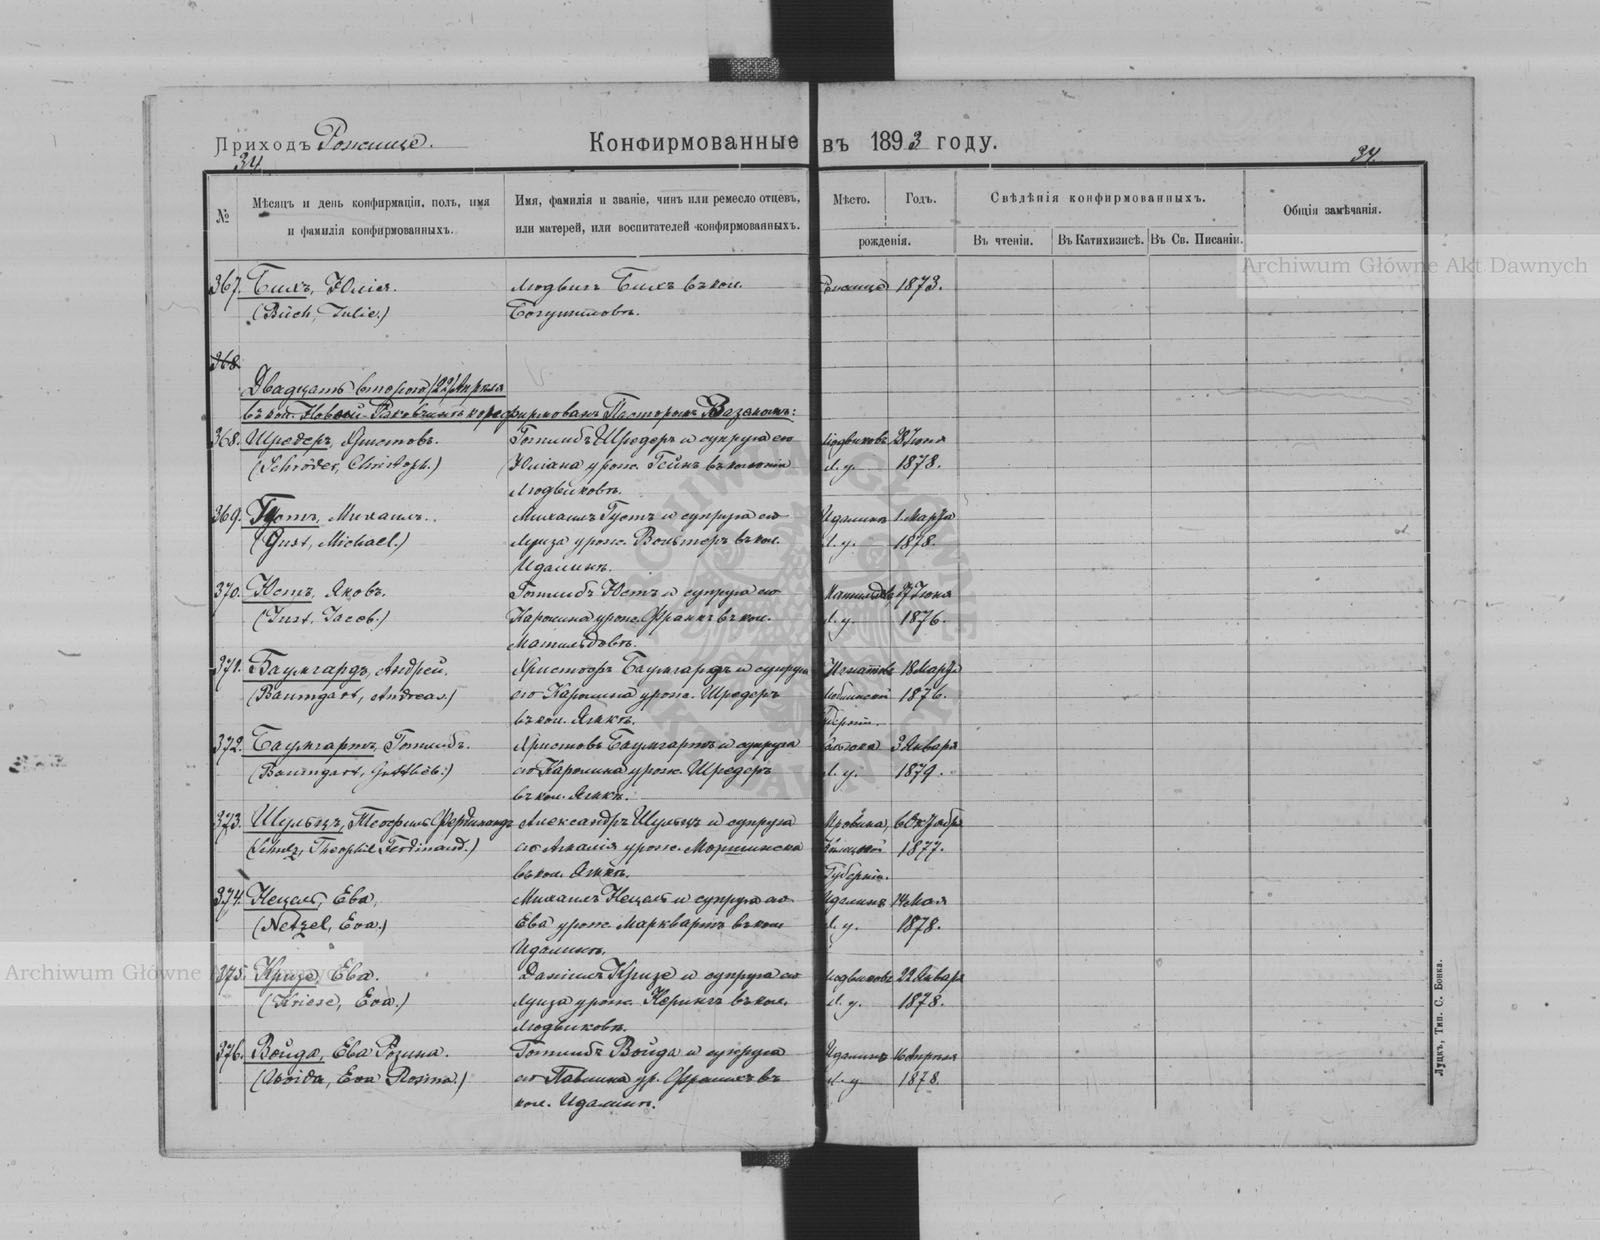 Приходъ Рожище.
Конфирмованные въ 1893 году.
34
34.
№
Мѣсяцъ и день конфирмаціи, полъ, имя
и фамилія конфирмованныхъ.
Имя, фамилія и званіе, чинъ или ремесло отцевъ,
или матерей, или воспитателей конфирмованныхъ.
Мѣсто.
Годъ.
рожденія.
Свѣдѣнія конфирмованныхъ.
Въ чтеніи.
Въ Катихизисѣ.
Въ Св. Писаніи.
Общія замѣчанія.
Archiwum Główne Akt Dawnych
367. Бихъ, Юлія. Людвигъ Бихъ въ кол. 1873.
(Büch, Julie.) Богушовкѣ.
368.
Двадцать второго /22/ Апрѣля
въ кол. Новой- конфирмованъ Пасторомъ
368. Шредеръ, Христофъ. Готлибъ Шредеръ и супруга его Людвиковъ 28 Іюня
(Schröder, Christoph.) Юліана урож. въ колоніи л. у. 1878.
Людвиковкѣ.
369. Густъ, Михаилъ. Михаилъ Густъ и супруга его Идалинъ 1 Марта
(Gust, Michael.) Луиза урож. въ кол. л. у. 1878.
Идалинѣ.
370. Юстъ, Яковъ. Готлибъ Юстъ и супруга его 27 Іюня
(Just, Jacob.) Каролина урож. Франкъ въ кол. л. у. 1876.
Матильдовкѣ.
371. Баумгардъ, Андрей. Христофъ Баумгардъ и супруга 18 Марта
(Baumgart, Andreas.) его Каролина урож. Шредеръ 1876.
въ кол. Губерніи.
372. Баумгартъ, Готлибъ. Христофъ Баумгартъ и супруга 3 Января
(Baumgart, Gottlieb.) его Каролина урож. Шредеръ л. у. 1879.
въ кол.
373. Шульцъ, Теофилъ Фердинандъ Александръ Шульцъ и супруга 6 Октября
(Schulz, Theophil Ferdinand.) его Амалія урож. Моршинска 1877.
въ кол. Губерніи.
374. Нецель, Ева. Михаилъ Нецель и супруга его Идалинъ 14 Мая
(Netzel, Eva.) Ева урож. Марквартъ въ кол. л. у. 1878.
Идалинѣ.
375. Кризе, Ева. Даніилъ Кризе и супруга его Людвиковъ 22 Января
(Kriese, Eva.) Луиза урож. Керингъ въ кол. л. у. 1878.
Людвиковкѣ.
376. Войда, Ева Розина. Готлибъ Войда и супруга Идалинъ 16 Апрѣля
(Woida, Eva Rosina.) его Павлина ур. въ л. у. 1878.
кол. Идалинѣ.
Archiwum Główne
Луцкъ, Тип. С. Бонка.